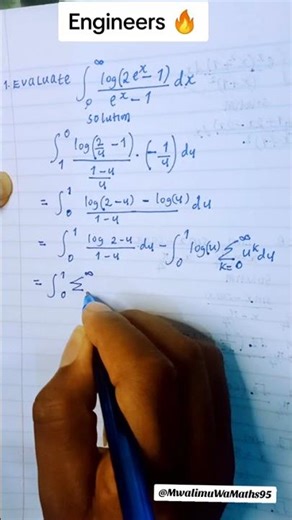 Engineers 🔥
1. Evaluate ∫₀^∞ log(2eˣ-1)/(eˣ-1) dx
solution
∫₁⁰ log(2/u -1)/((1-u)/u) · (-1/u) du
= ∫₀¹ (log(2-u) - log(u))/(1-u) du
= ∫₀¹ (log 2-u)/(1-u) du - ∫₀¹ log(u) ∑_{k=0}^∞ uᵏ du
= ∫₀¹ ∑^∞
@MwalimuWaMaths95